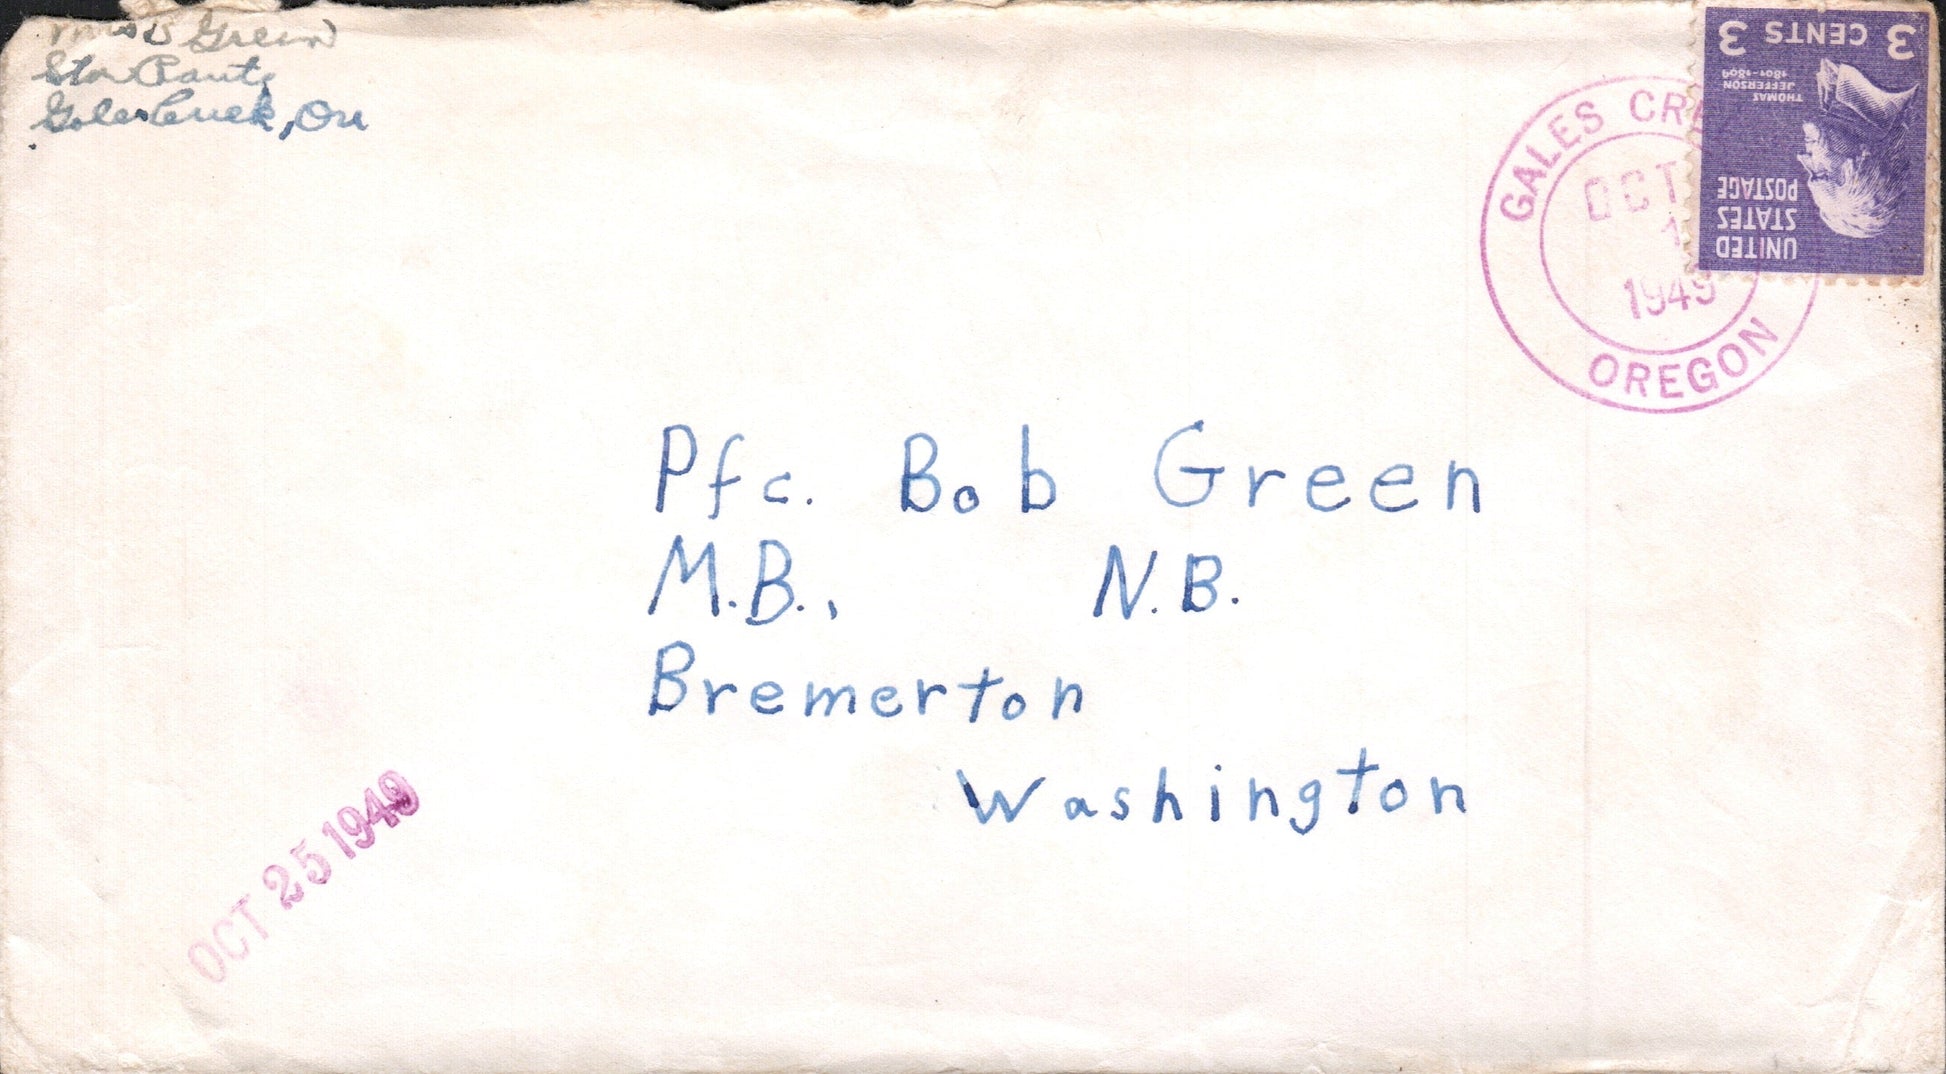 Mrs D Green
Star Route
Gales Creek, Ore
GALES CRE
OCT
1
1949
OREGON
3 CENTS 3
THOMAS
JEFFERSON
1801-1809
UNITED
STATES
POSTAGE
Pfc. Bob Green
M.B., N.B.
Bremerton
Washington
OCT 25 1949